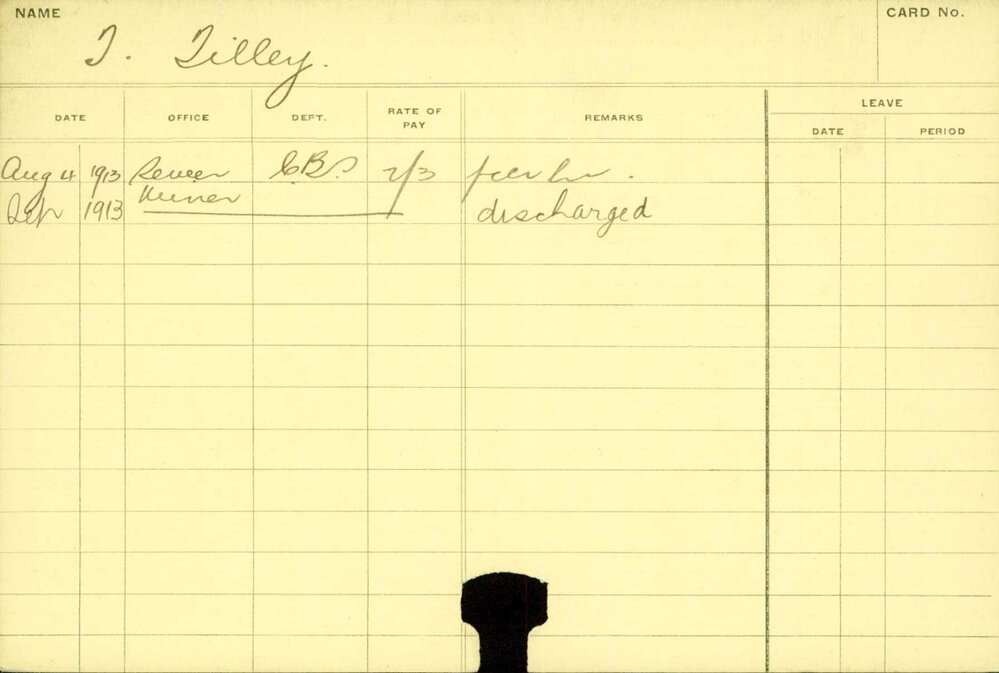 NAME
CARD No.
T. Tilley.
DATE OFFICE DEPT. RATE OF PAY REMARKS LEAVE
DATE PERIOD
Aug 4 1913 Sewer C.B.S 2/3 per hr.
Miner
Sep 1913 discharged